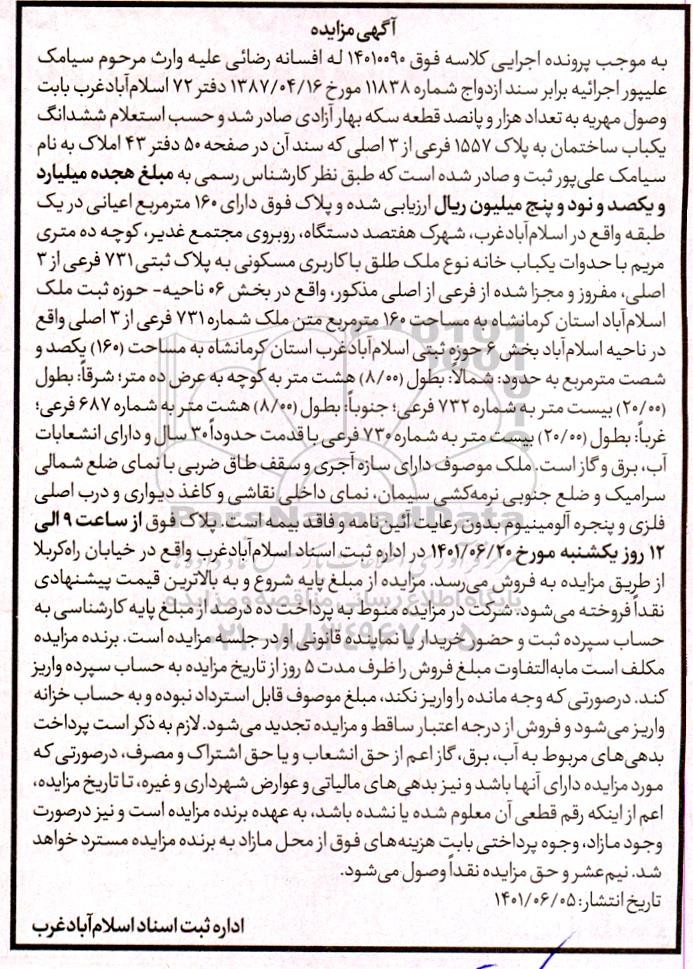 آگهی مزایده
به موجب پرونده اجرایی کلاسه فوق ۱۴۰۱۰۰۹۰ له افسانه رضائی علیه وارث مرحوم سیامک
علیپور اجرائیه برابر سند ازدواج شماره ۱۱۸۳۸ مورخ ۱۳۸۷/۰۴/۱۶ دفتر ۷۲ اسلام‌آبادغرب بابت
وصول مهریه به تعداد هزار و پانصد قطعه سکه بهار آزادی صادر شد و حسب استعلام ششدانگ
یکباب ساختمان به پلاک ۱۵۵۷ فرعی از ۳ اصلی که سند آن در صفحه ۵۰ دفتر ۴۳ املاک به نام
سیامک علی‌پور ثبت و صادر شده است که طبق نظر کارشناس رسمی به مبلغ هجده میلیارد
و یکصد و نود و پنج میلیون ریال ارزیابی شده و پلاک فوق دارای ۱۶۰ مترمربع اعیانی در یک
طبقه واقع در اسلام‌آبادغرب، شهرک هفتصد دستگاه، روبروی مجتمع غدیر، کوچه ده متری
مریم با حدوات یکباب خانه نوع ملک طلق با کاربری مسکونی به پلاک ثبتی ۷۳۱ فرعی از ۳
اصلی، مفروز و مجزا شده از فرعی از اصلی مذکور، واقع در بخش ۰۶ ناحیه- حوزه ثبت ملک
اسلام‌آباد استان کرمانشاه به مساحت ۱۶۰ مترمربع متن ملک شماره ۷۳۱ فرعی از ۳ اصلی واقع
در ناحیه اسلام‌آباد بخش ۶ حوزه ثبتی اسلام‌آبادغرب استان کرمانشاه به مساحت (۱۶۰) یکصد و
شصت مترمربع به حدود: شمالاً: بطول (۸/۰۰) هشت متر به کوچه به عرض ده متر؛ شرقاً: بطول
(۲۰/۰۰) بیست متر به شماره ۷۳۲ فرعی؛ جنوباً: بطول (۸/۰۰) هشت متر به شماره ۶۸۷ فرعی؛
غرباً: بطول (۲۰/۰۰) بیست متر به شماره ۷۳۰ فرعی با قدمت حدوداً ۳۰ سال و دارای انشعابات
آب، برق و گاز است. ملک موصوف دارای سازه آجری و سقف طاق ضربی با نمای ضلع شمالی
سرامیک و ضلع جنوبی نرمه‌کشی سیمان، نمای داخلی نقاشی و کاغذ دیواری و درب اصلی
فلزی و پنجره آلومینیوم بدون رعایت آئین‌نامه و فاقد بیمه است. پلاک فوق از ساعت ۹ الی
۱۲ روز یکشنبه مورخ ۱۴۰۱/۰۶/۲۰ در اداره ثبت اسناد اسلام‌آبادغرب واقع در خیابان راه‌کربلا
از طریق مزایده به فروش می‌رسد. مزایده از مبلغ پایه شروع و به بالاترین قیمت پیشنهادی
نقداً فروخته می‌شود، شرکت در مزایده منوط به پرداخت ده درصد از مبلغ پایه کارشناسی به
حساب سپرده ثبت و حضور خریدار یا نماینده قانونی او در جلسه مزایده است. برنده مزایده
مکلف است مابه‌التفاوت مبلغ فروش را ظرف مدت ۵ روز از تاریخ مزایده به حساب سپرده واریز
کند. درصورتی که وجه مانده را واریز نکند، مبلغ موصوف قابل استرداد نبوده و به حساب خزانه
واریز می‌شود و فروش از درجه اعتبار ساقط و مزایده تجدید می‌شود. لازم به ذکر است پرداخت
بدهی‌های مربوط به آب، برق، گاز اعم از حق انشعاب و یا حق اشتراک و مصرف، درصورتی که
مورد مزایده دارای آنها باشد و نیز بدهی‌های مالیاتی و عوارض شهرداری و غیره، تا تاریخ مزایده،
اعم از اینکه رقم قطعی آن معلوم شده یا نشده باشد، به عهده برنده مزایده است و نیز درصورت
وجود مازاد، وجوه پرداختی بابت هزینه‌های فوق از محل مازاد به برنده مزایده مسترد خواهد
شد. نیم‌عشر و حق مزایده نقداً وصول می‌شود.
تاریخ انتشار: ۱۴۰۱/۰۶/۰۵
اداره ثبت اسناد اسلام‌آبادغرب
ParsNamadData
پایگاه اطلاع رسانی مناقصه و مزایده
۰۲۱-۸۸۳۴۹۶۷۰-۵